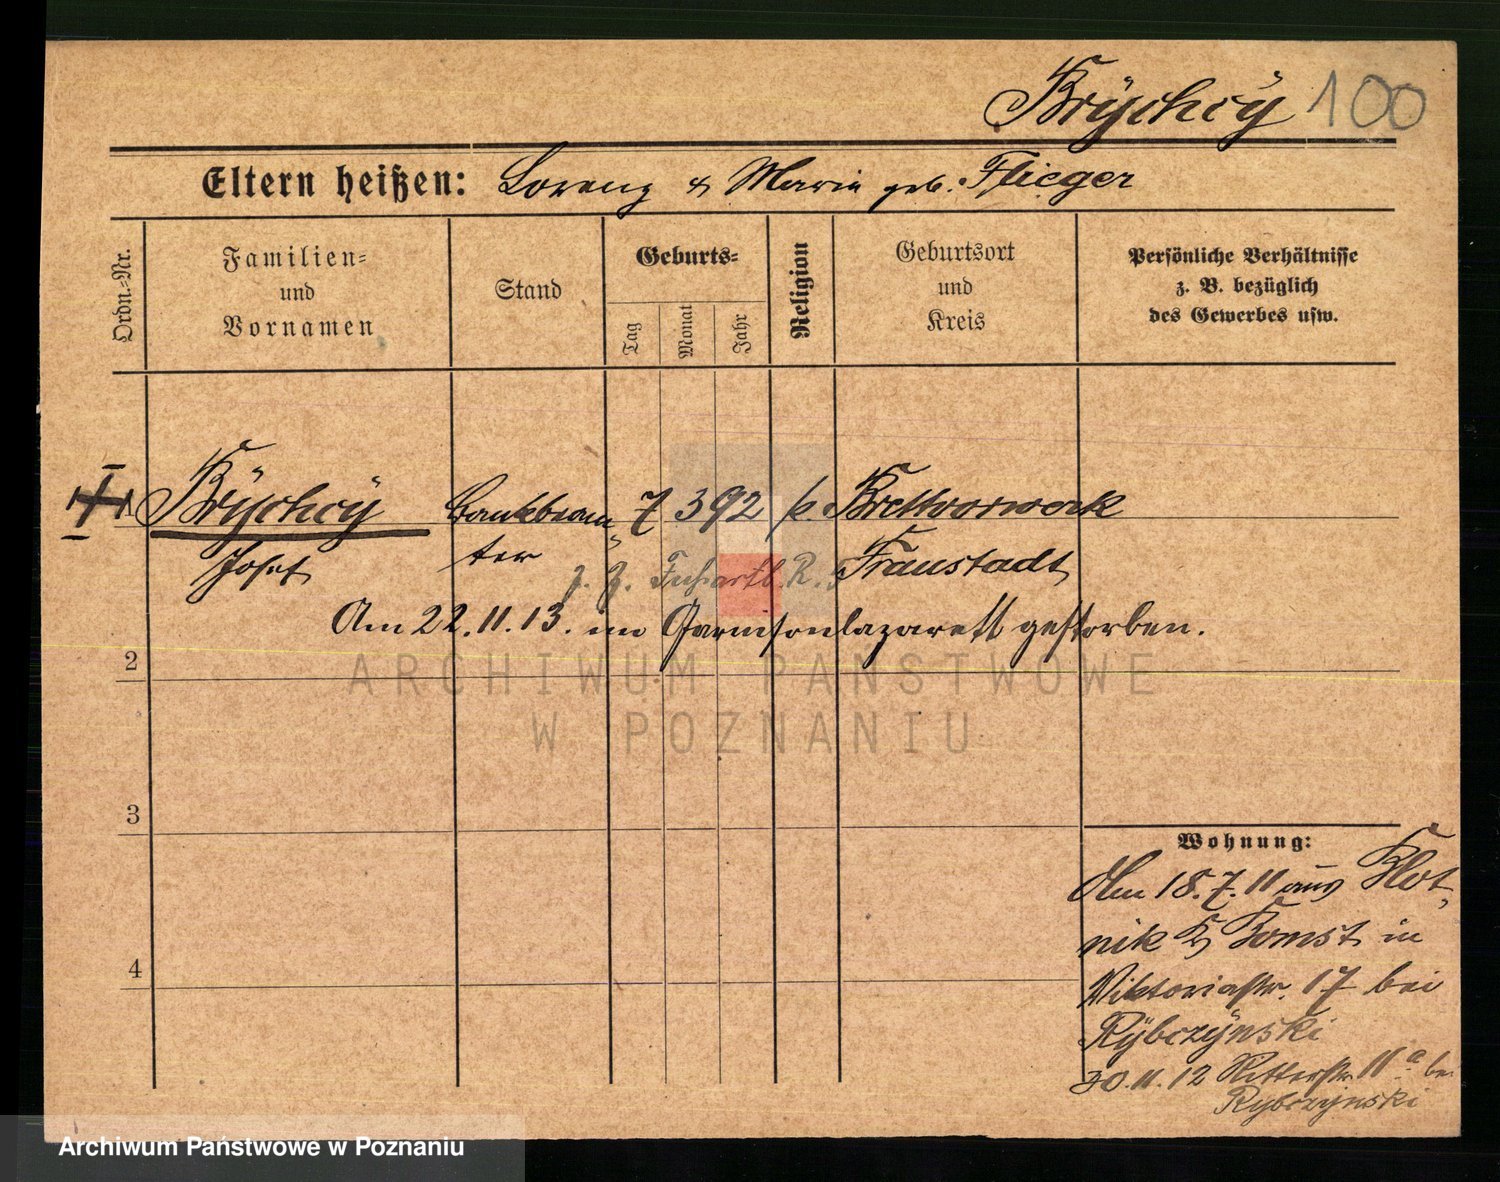 Brÿchcÿ 100
Eltern heißen: Lorenz & Marie geb. Flieger
Ordn.-Nr.
Familien-
und
Vornamen
Stand
Geburts-
Tag
Monat
Jahr
Religion
Geburtsort
und
Kreis
Persönliche Verhältnisse
z. B. bezüglich
des Gewerbes usw.
1 Brÿchcÿ Bankbeam- 7 3 92 k. Brettvorwerk
Josef ter Fraustadt
z. Z. R.
Am 22.11.13. im Garnisonlazarett gestorben.
2
ARCHIWUM PAŃSTWOWE
W POZNANIU
3
4
Wohnung:
Am 18.7.11 aus Klot-
nik Kr Bomst in
Viktoriastr. 17 bei
Rÿbczÿnski
30.11.12 Ritterstr. 11a bei
Rybczÿnski
Archiwum Państwowe w Poznaniu